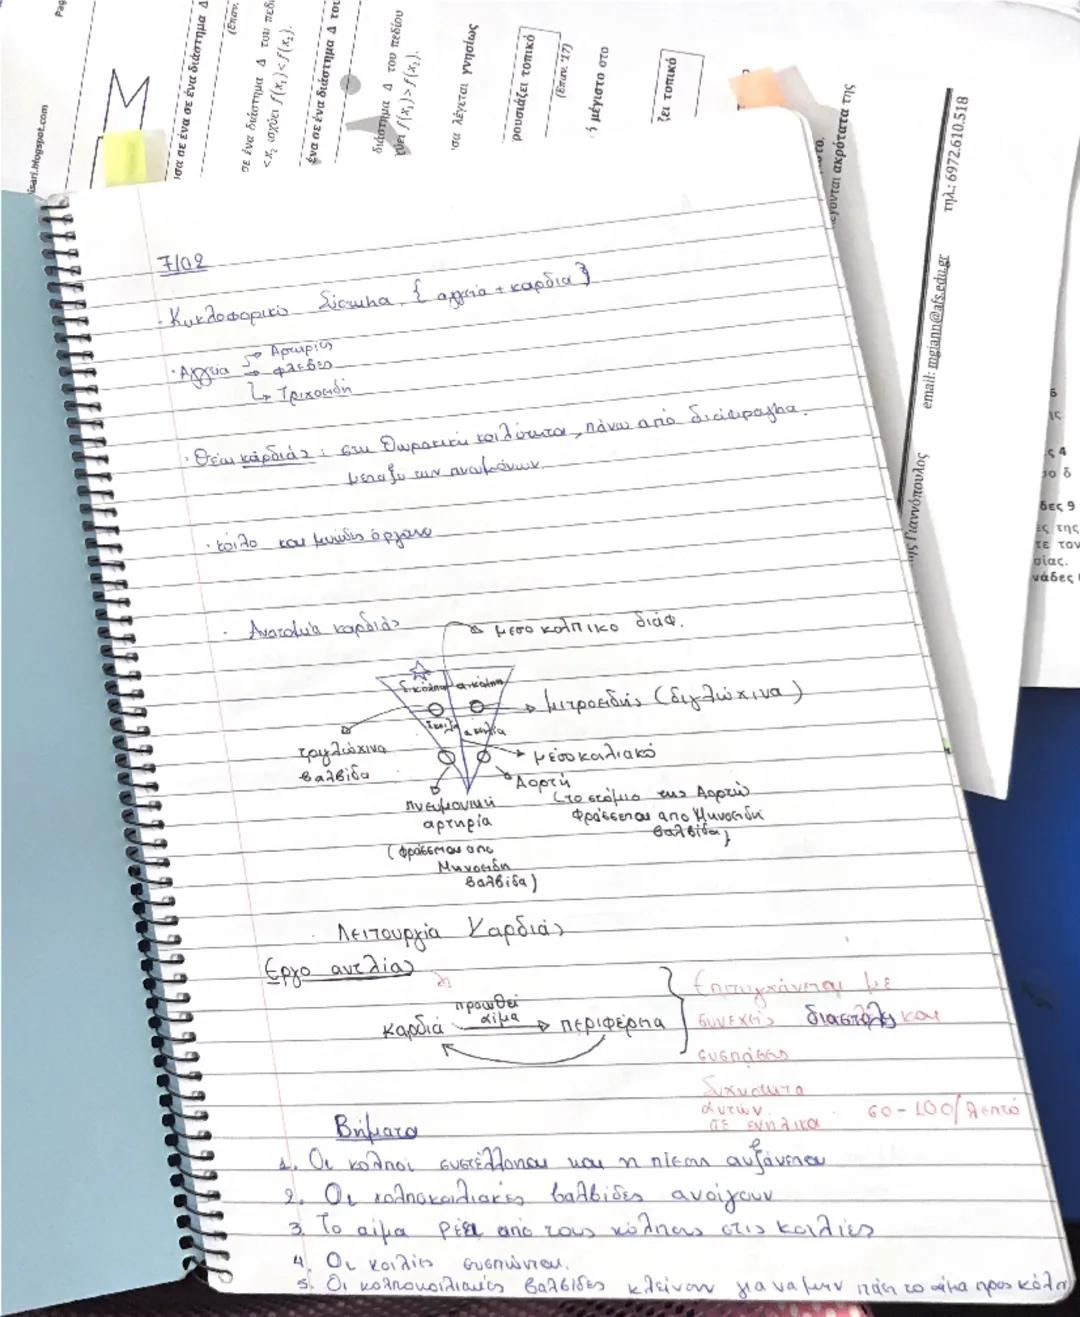 Pag
isari.blogspot.com
M
σα σε ένα διάστημα Δ
(Επαν.
σε ένα διάστημα Δ του πεδί
<x₂ ισχύει f(x₁)<f(x₂).
ένα σε ένα διάστημα Δ του
διάστημα Δ του πεδίου
f(x₁)>f(x₂).
σα λέγεται γνησίως
ρουσιάζει τοπικό
(Επαν. '17)
ή μέγιστο στο
ζει τοπικό
στο.
γονται ακρότατα της
ης Γιαννόπουλος email: mgiann@afs.edu.gr τηλ.: 6972.610.518
6
ις
ς 4
ιο δ
δες 9
ές της
τε τον
οίας.
νάδες
7/02
· Κυκλοφορικό Σύστημα { αγγεία + καρδιά }
· Αγγεία → Αρτηρίες
→ φλέβες
→ Τριχοειδή
· Θέση καρδιάς : στη Θωρακική κοιλότητα, πάνω από διάφραγμα.
μεταξύ των πνευμόνων.
· κοίλο και μυώδες όργανο
· Ανατομία καρδιάς
μεσοκολπικο διάφ.
δ.κόλπος α.κόλπος
μιτροειδής (διγλώχινα)
τριγλώχινα
βαλβίδα
α κοιλία
μεσοκοιλιακό
Αορτή
(το στόμιο της Αορτής
φράσσεται απο Μηνοειδή
βαλβίδα)
πνευμονική
αρτηρία
(φράσσεται απο
Μηνοειδη
βαλβίδα)
· Λειτουργία Καρδιάς
Εργο αντλίας
καρδιά προωθεί αίμα → περιφέρεια
Επιτυγχάνεται με
συνεχείς διαστολές και
συσπάσεις
Συχνότητα
αυτών
σε ενήλικα 60-100/λεπτό
Βήματα
1. Οι κολποι συστέλλονται και η πίεση αυξάνεται
2. Οι κολποκοιλιακές βαλβίδες ανοίγουν
3. Το αίμα ρέει από τους κόλπους στις κοιλίες
4. Οι κοιλίες συσπώνται.
5. Οι κολποκοιλιακές βαλβίδες κλείνουν για να μην πάει το αίμα προς κόλπ